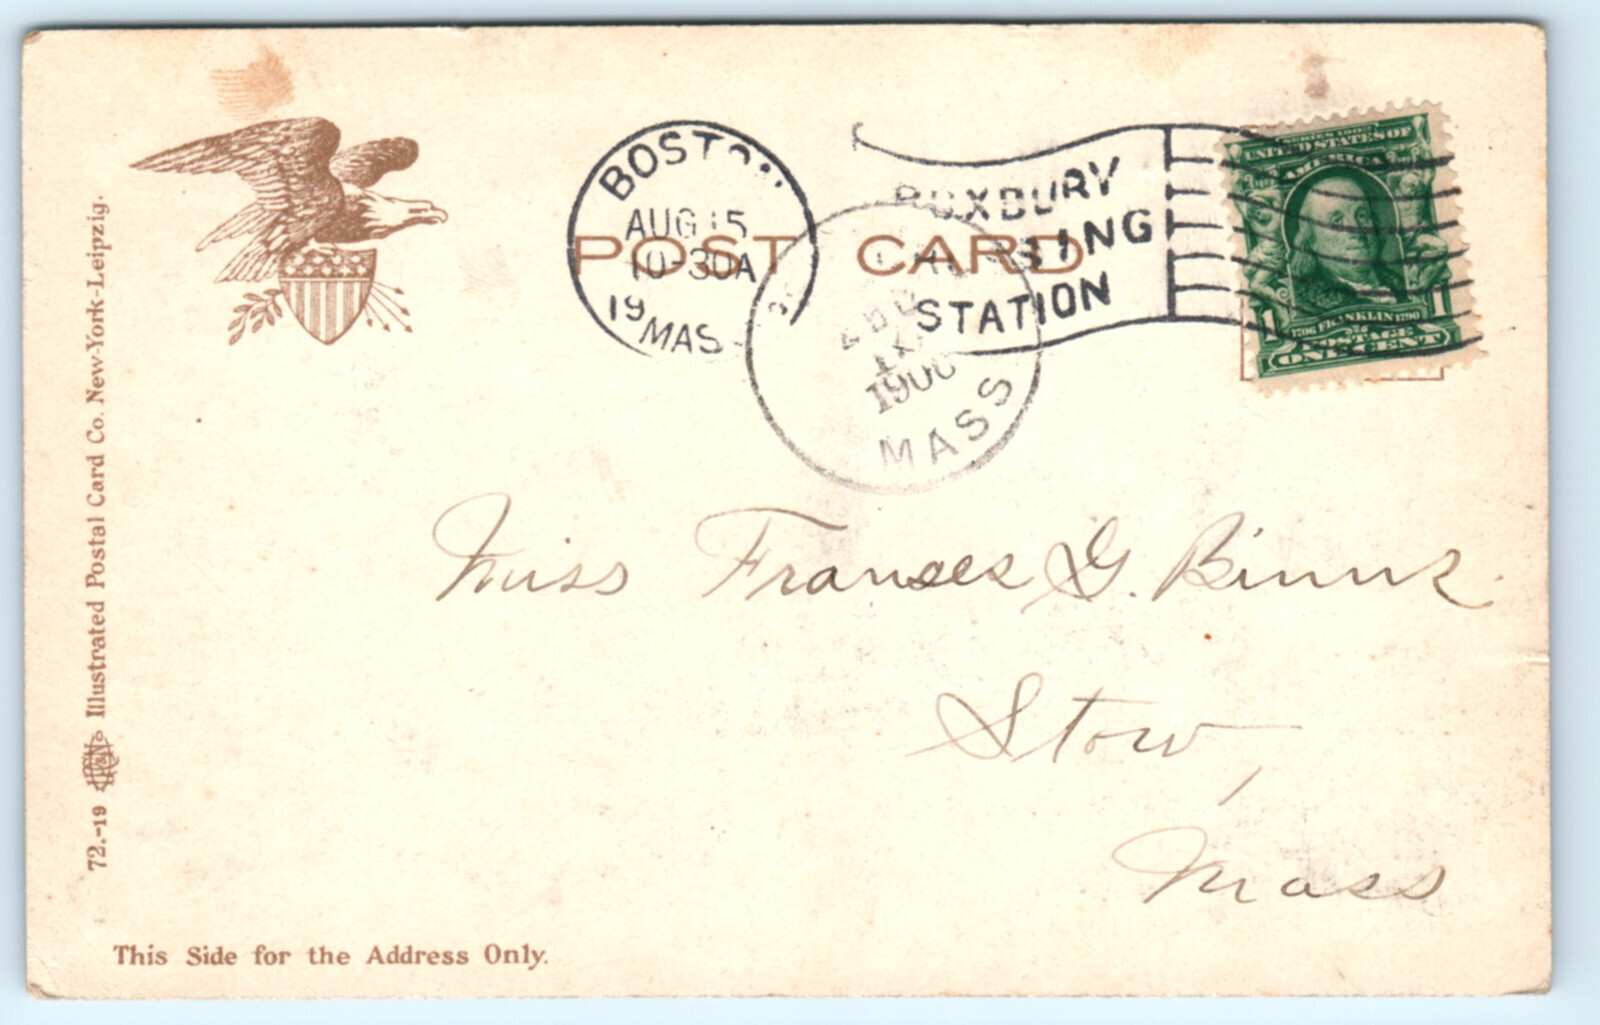 BOSTON
AUG 15
10-30A
19
MAS
ROXBURY
STATION
POST CARD
1900
MASS
SERIES 1902
UNITED STATES OF
AMERICA
1706 FRANKLIN 1790
1 1
POSTAGE
ONE CENT
Miss Frances G. Binns.
Stow,
Mass
This Side for the Address Only.
72.-19
Illustrated Postal Card Co. New-York-Leipzig.